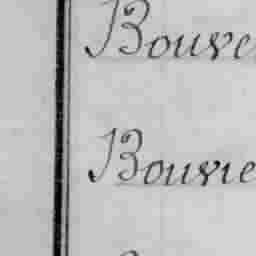 Bouve
Bouvie